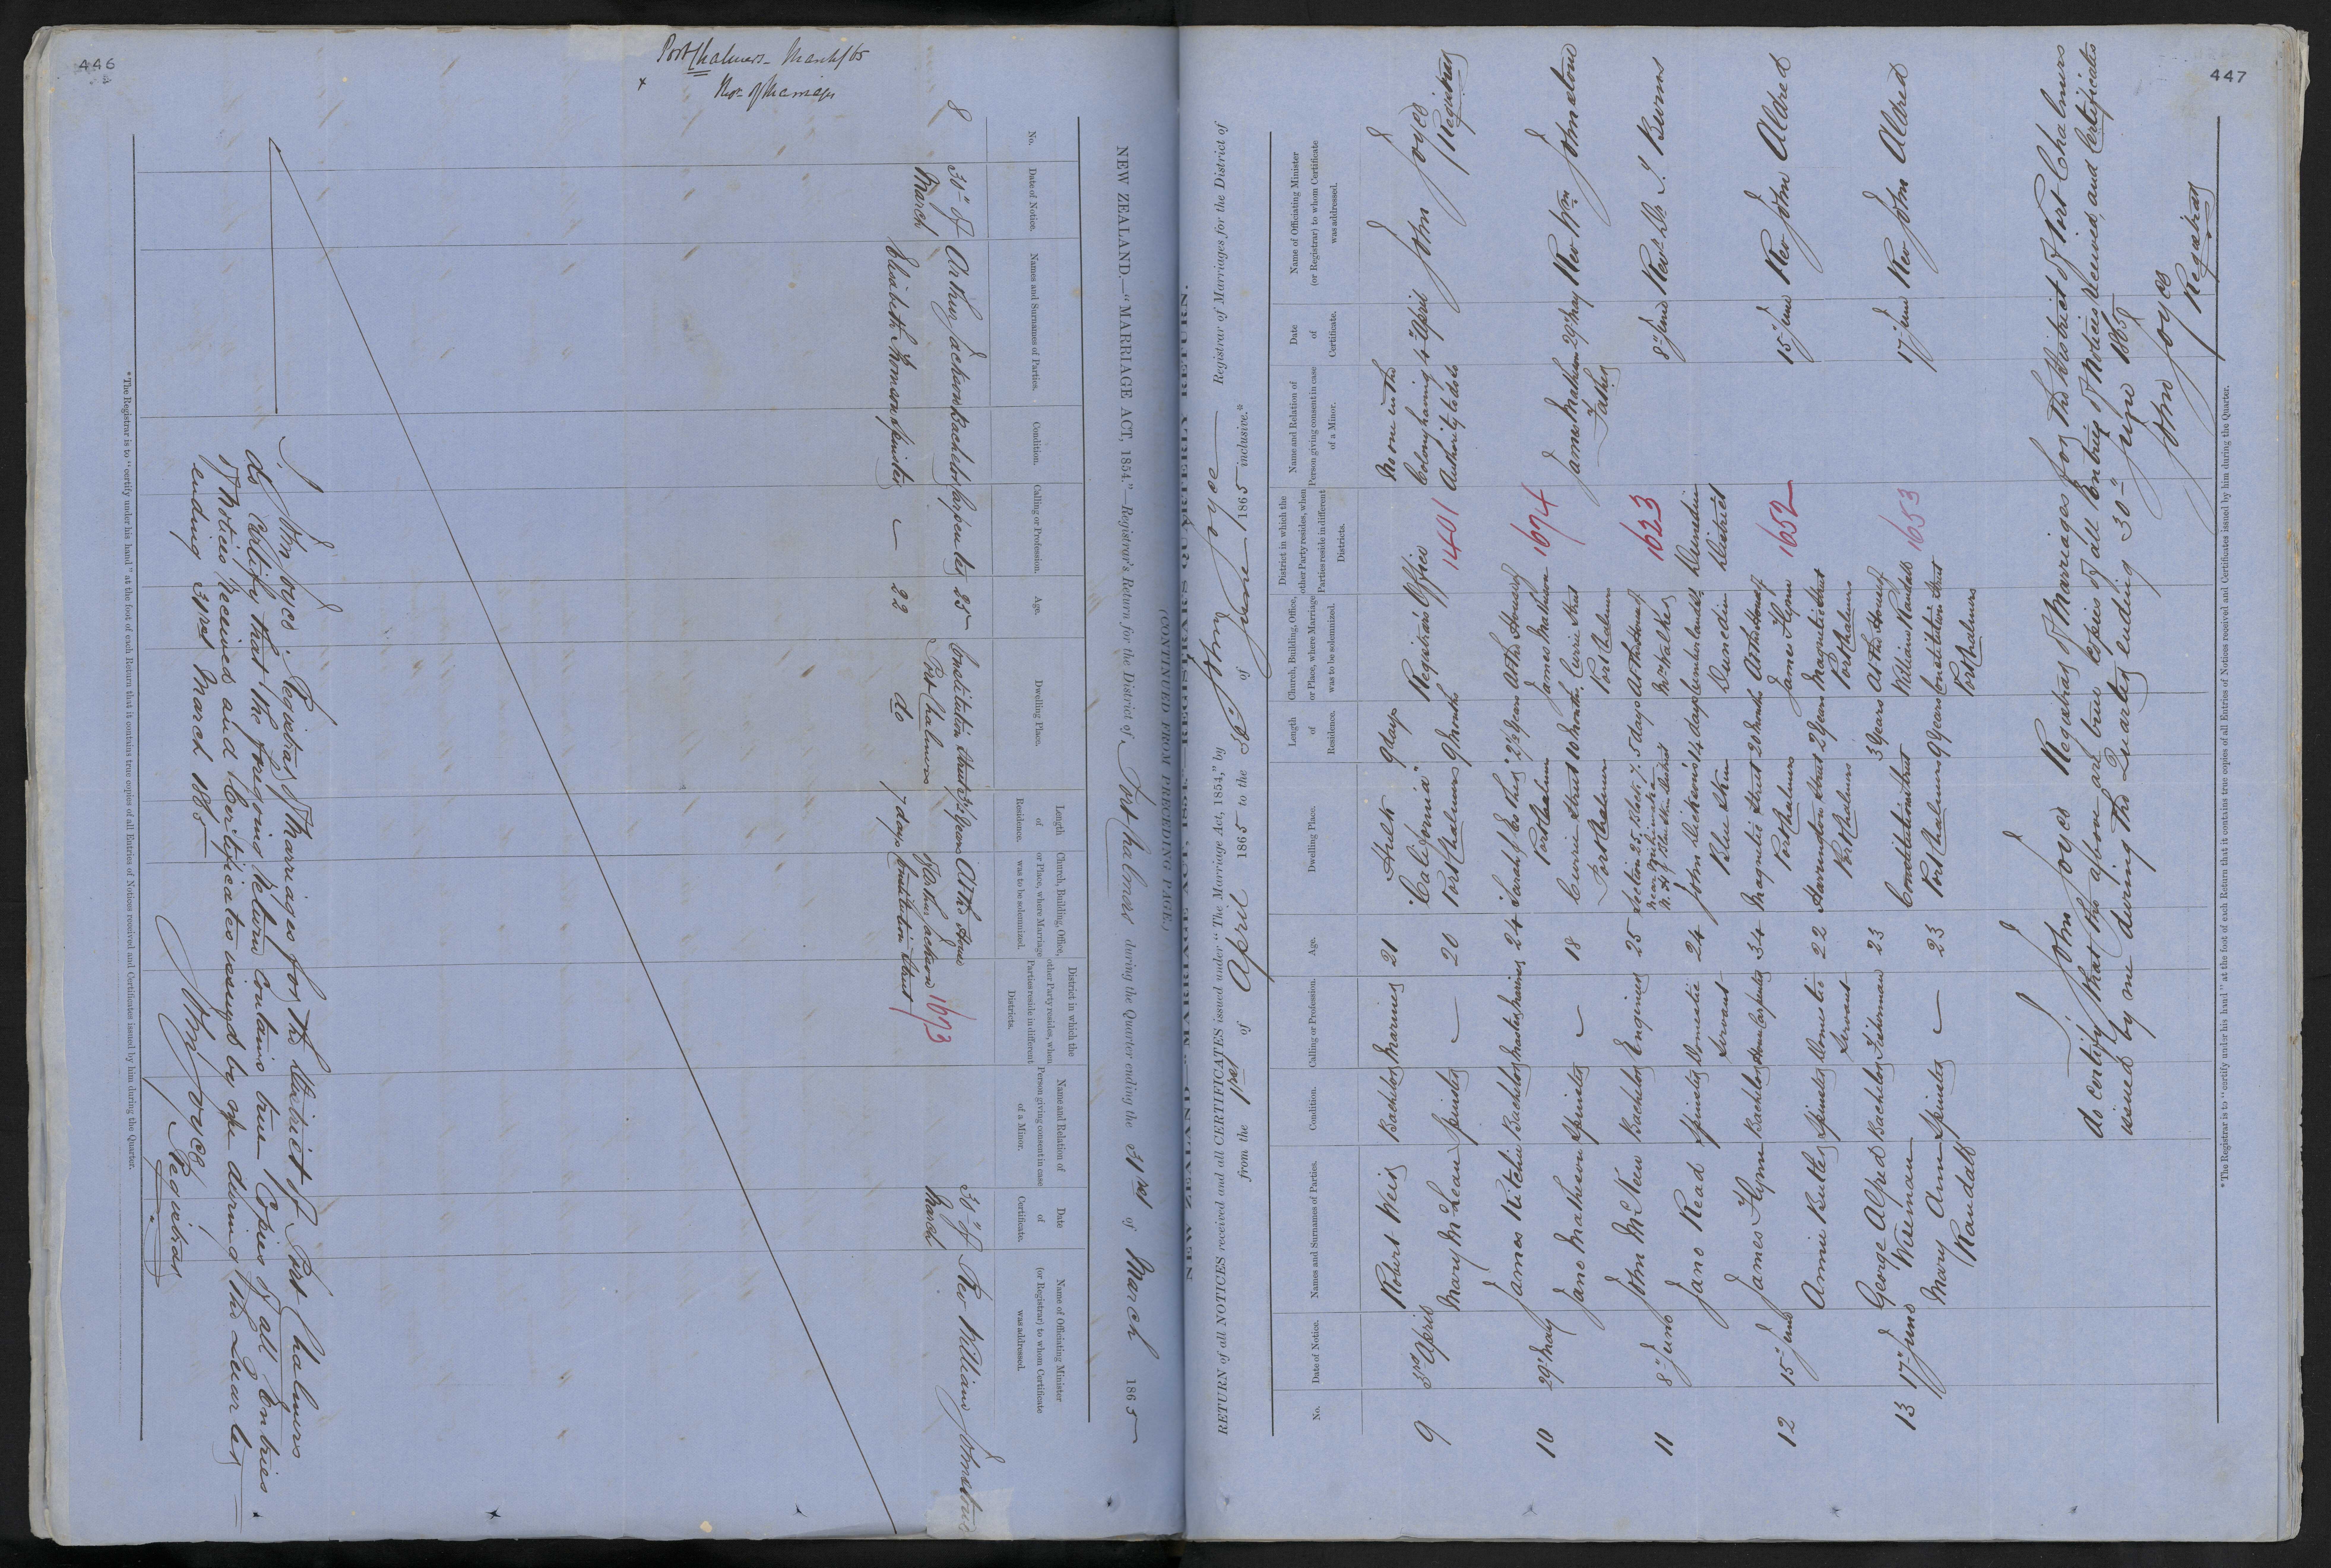 446
Port Chalmers - March/65
NEW ZEALAND.—"MARRIAGE ACT, 1854."—Registrar's Return for the District of Port Chalmers during the Quarter ending the 31st of March 1865
No.
Date of Notice.
Names and Surnames of Parties.
Condition.
Calling or Profession.
Age.
Dwelling Place.
Length of Residence.
Church, Building, Office, or Place, where Marriage was to be solemnized.
District in which the other Party resides, when Parties reside in different Districts.
Name and Relation of Person giving consent in case of a Minor.
Date of Certificate.
Name of Officiating Minister (or Registrar) to whom Certificate was addressed.
8
30" of March
Arthur Jackson Bachelor Carpenter 25 Constitution Street Port Chalmers 3½ years
Elizabeth Thomson Spinster — 22 do 7 days
At the House of Arthur Jackson Constitution Street
1673
30" of March
Rev William Johnstone
I John Joyce Registrar of Marriages for the District of Port Chalmers
do Certify that the foregoing Return contains true Copies of all Entries
of Notices Received and Certificates issued by me during the Quarter
ending 31st March 1865
John Joyce
Registrar
* The Registrar is to "certify under his hand" at the foot of each Return that it contains true copies of all Entries of Notices received and Certificates issued by him during the Quarter.
447
NEW ZEALAND "MARRIAGE ACT, 1854."—REGISTRAR'S QUARTERLY RETURN.
(CONTINUED FROM PRECEDING PAGE.)
RETURN of all NOTICES received and all CERTIFICATES issued under "The Marriage Act, 1854," by John Joyce Registrar of Marriages for the District of
from the 1st of April 1865 to the 30" of June 1865 inclusive.*
No.
Date of Notice.
Names and Surnames of Parties.
Condition.
Calling or Profession.
Age.
Dwelling Place.
Length of Residence.
Church, Building, Office, or Place, where Marriage was to be solemnized.
District in which the other Party resides, when Parties reside in different Districts.
Name and Relation of Person giving consent in case of a Minor.
Date of Certificate.
Name of Officiating Minister (or Registrar) to whom Certificate was addressed.
9 3rd April
Robert Weir Bachelor Mariner 21 Hulk "California" 9 days
Mary McLean Spinster — 20 Port Chalmers 9 Months
Registrars Office
1401
No one in the Colony having Authority to do so
4" April
John Joyce Registrar
10 29" May
James Ritchie Bachelor Master Mariner 24 Port Chalmers 2½ years
Jane Mathison Spinster — 18 Currie Street Port Chalmers 10 Months
At the House of James Mathison Currie Street Port Chalmers
1674
James Mathison Father
29" May
Rev Wm Johnstone
11 8" June
John McKew Bachelor Engineer 25 Section 25 Block 7. 5 days
Jane Read Spinster Domestic Servant 24 John Dickson's Blue Skin 14 days
At the House of Mr Walker Cumberland St Dunedin
Dunedin District
1623
8" June
Revd Dr D. Burns
12 15" June
James Flynn Bachelor House Carpenter 34 Magnetic Street Port Chalmers 20 Months
Annie Butler Spinster Domestic Servant 22 Harrington Street Port Chalmers 2 years
At the House of James Flynn Magnetic Street Port Chalmers
1652
15" June
Rev John Aldred
13 17" June
George Alfred Wiseman Bachelor Fisherman 23 Constitution Street 3 years
Mary Ann Randall Spinster — 23 Port Chalmers 9 years
At the House of William Randall Constitution Street Port Chalmers
1653
17" June
Rev John Aldred
I John Joyce Registrar of Marriages for the District of Port Chalmers
do certify that the above are true Copies of all Entries of Notices received, and Certificates
issued by me during the Quarter ending 30" June 1865
John Joyce
Registrar
* The Registrar is to "certify under his hand" at the foot of each Return that it contains true copies of all Entries of Notices received and Certificates issued by him during the Quarter.